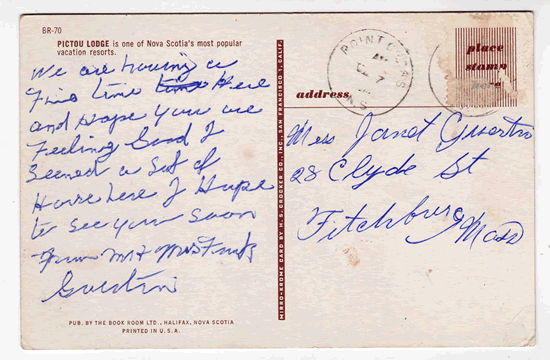 BR-70
PICTOU LODGE is one of Nova Scotia's most popular
vacation resorts.
We are having a
Fine time Here
and Hope you are
Feeling Good I
Seened a Set of
Horse here I Hope
to see you Soon
From Mr + Mrs
Guertin
PUB. BY THE BOOK ROOM LTD., HALIFAX, NOVA SCOTIA
PRINTED IN U.S.A.
MIRRO-KROME CARD BY H. S. CROCKER CO., INC., SAN FRANCISCO 1, CALIF.
N.S.
place
stamp
here
address
Miss Janet Guertin
28 Clyde St
Fitchburg
Mass